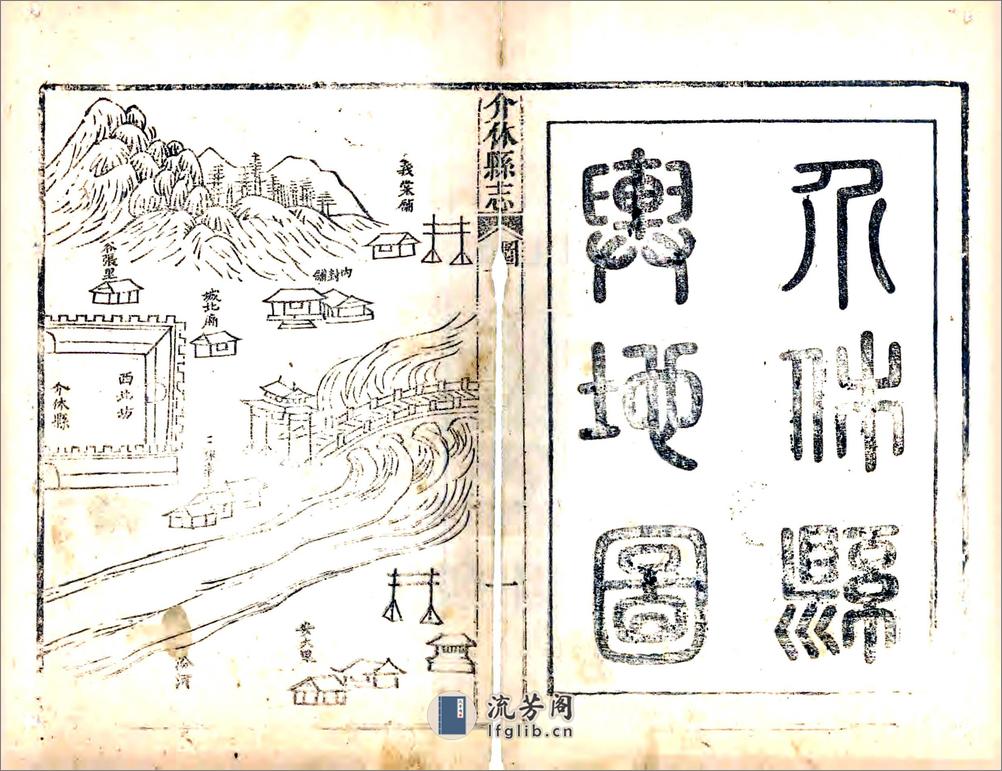 介休縣
輿地圖
介休縣志
圖
一
義棠舖
內封舖
城北廟
西北坊
介休縣
安太里
汾河
流芳阁
lfglib.cn